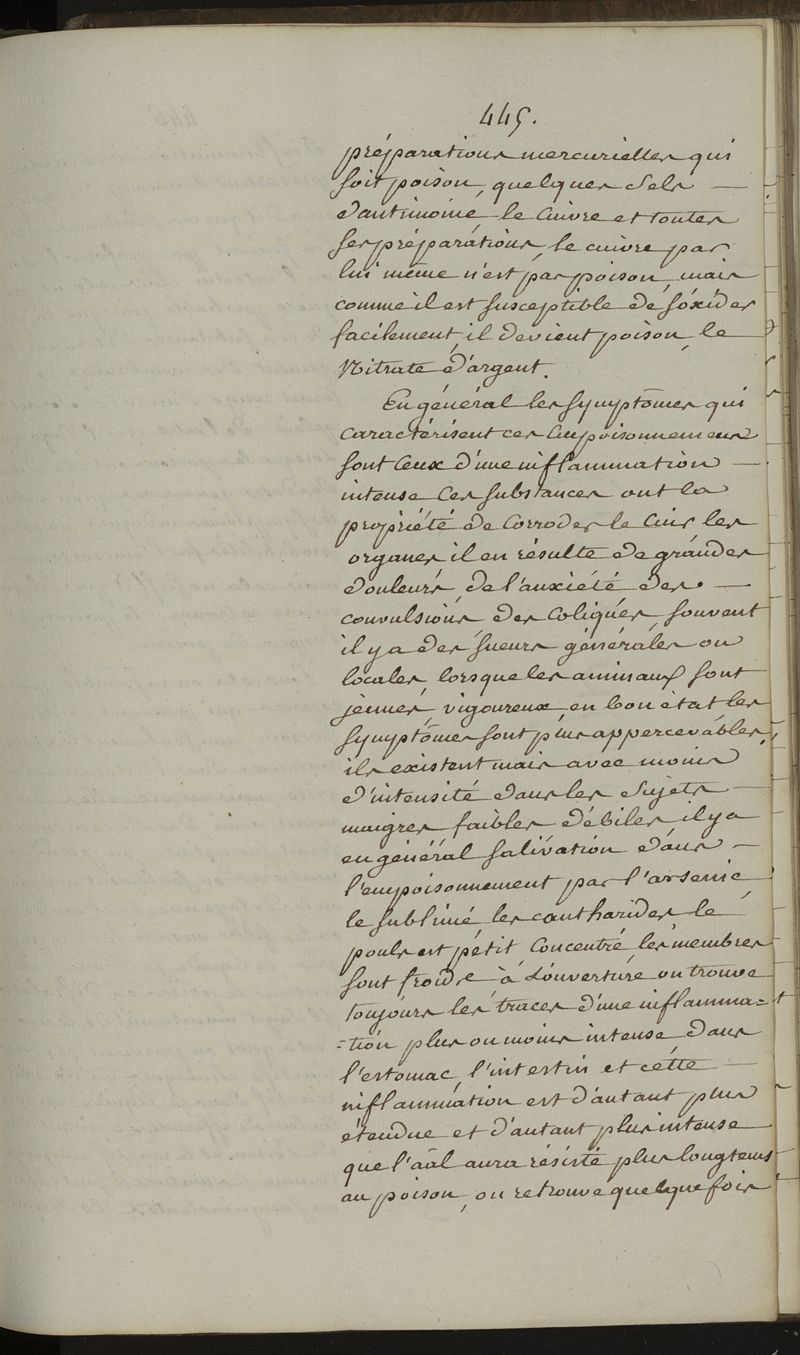 445.
préparations mercurielles qui
soit poison, quelques Sels —
d'antimoine, le Cuivre et toutes
ses préparations, le cuivre par
lui même n'est pas poison, mais
comme il est susceptible de s'oxider
facilement, il devient poison, le
Nitrate d'argent.
En général les symptômes qui
caractérisent ces Empoisonnemens
sont Ceux d'une inflammation —
intense Ces substances ont la
propriété de Corroder le Cuir les
organes il en résulte de grandes
douleurs, de l'anxiété des —
convulsions, des Coliques, souvent
il y a des sueurs générales ou
locales, lorsque les animaux sont
jeunes, vigoureux, en bon état les
symptômes sont plus appercevables,
ils existent mais avec moins
d'intensité dans les Sujets —
maigres faibles débiles, il y a
en général salivation dans —
l'empoisonnement par l'arsenic
le sublimé les cantharides le
pouls est petit Concentré, les membres
sont froids à L'ouverture on trouve
toujours les traces d'une inflamma=
=tion plus ou moins intense dans
l'estomac, l'intestin et cette —
inflammation est d'autant plus
étendue et d'autant plus intense
que l'aâl aura résisté plus longtems
au poison, on retrouve quelque fois